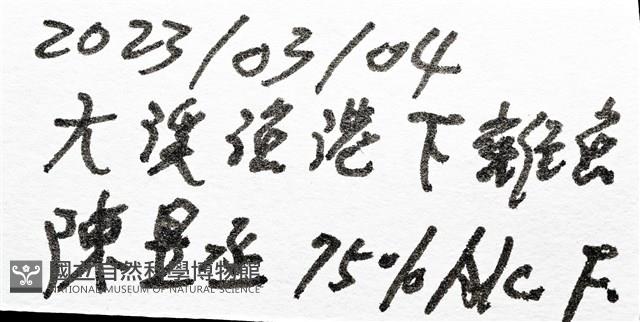 2023/03/04
大溪漁港下雜魚
陳昱丞 75% Alc F.
國立自然科學博物館
NATIONAL MUSEUM OF NATURAL SCIENCE